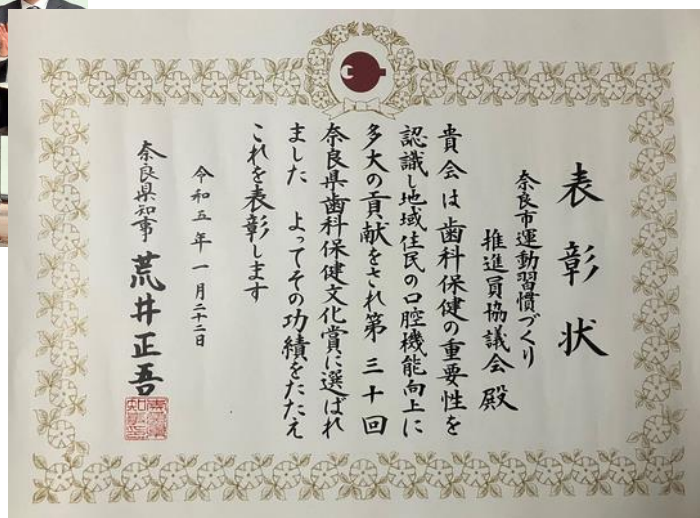 表彰状
奈良市運動習慣づくり
推進員協議会 殿
貴会は歯科保健の重要性を
認識し地域住民の口腔機能向上に
多大の貢献をされ第三十回
奈良県歯科保健文化賞に選ばれ
ました よってその功績をたたえ
これを表彰します
令和五年一月二十二日
奈良県知事 荒井正吾